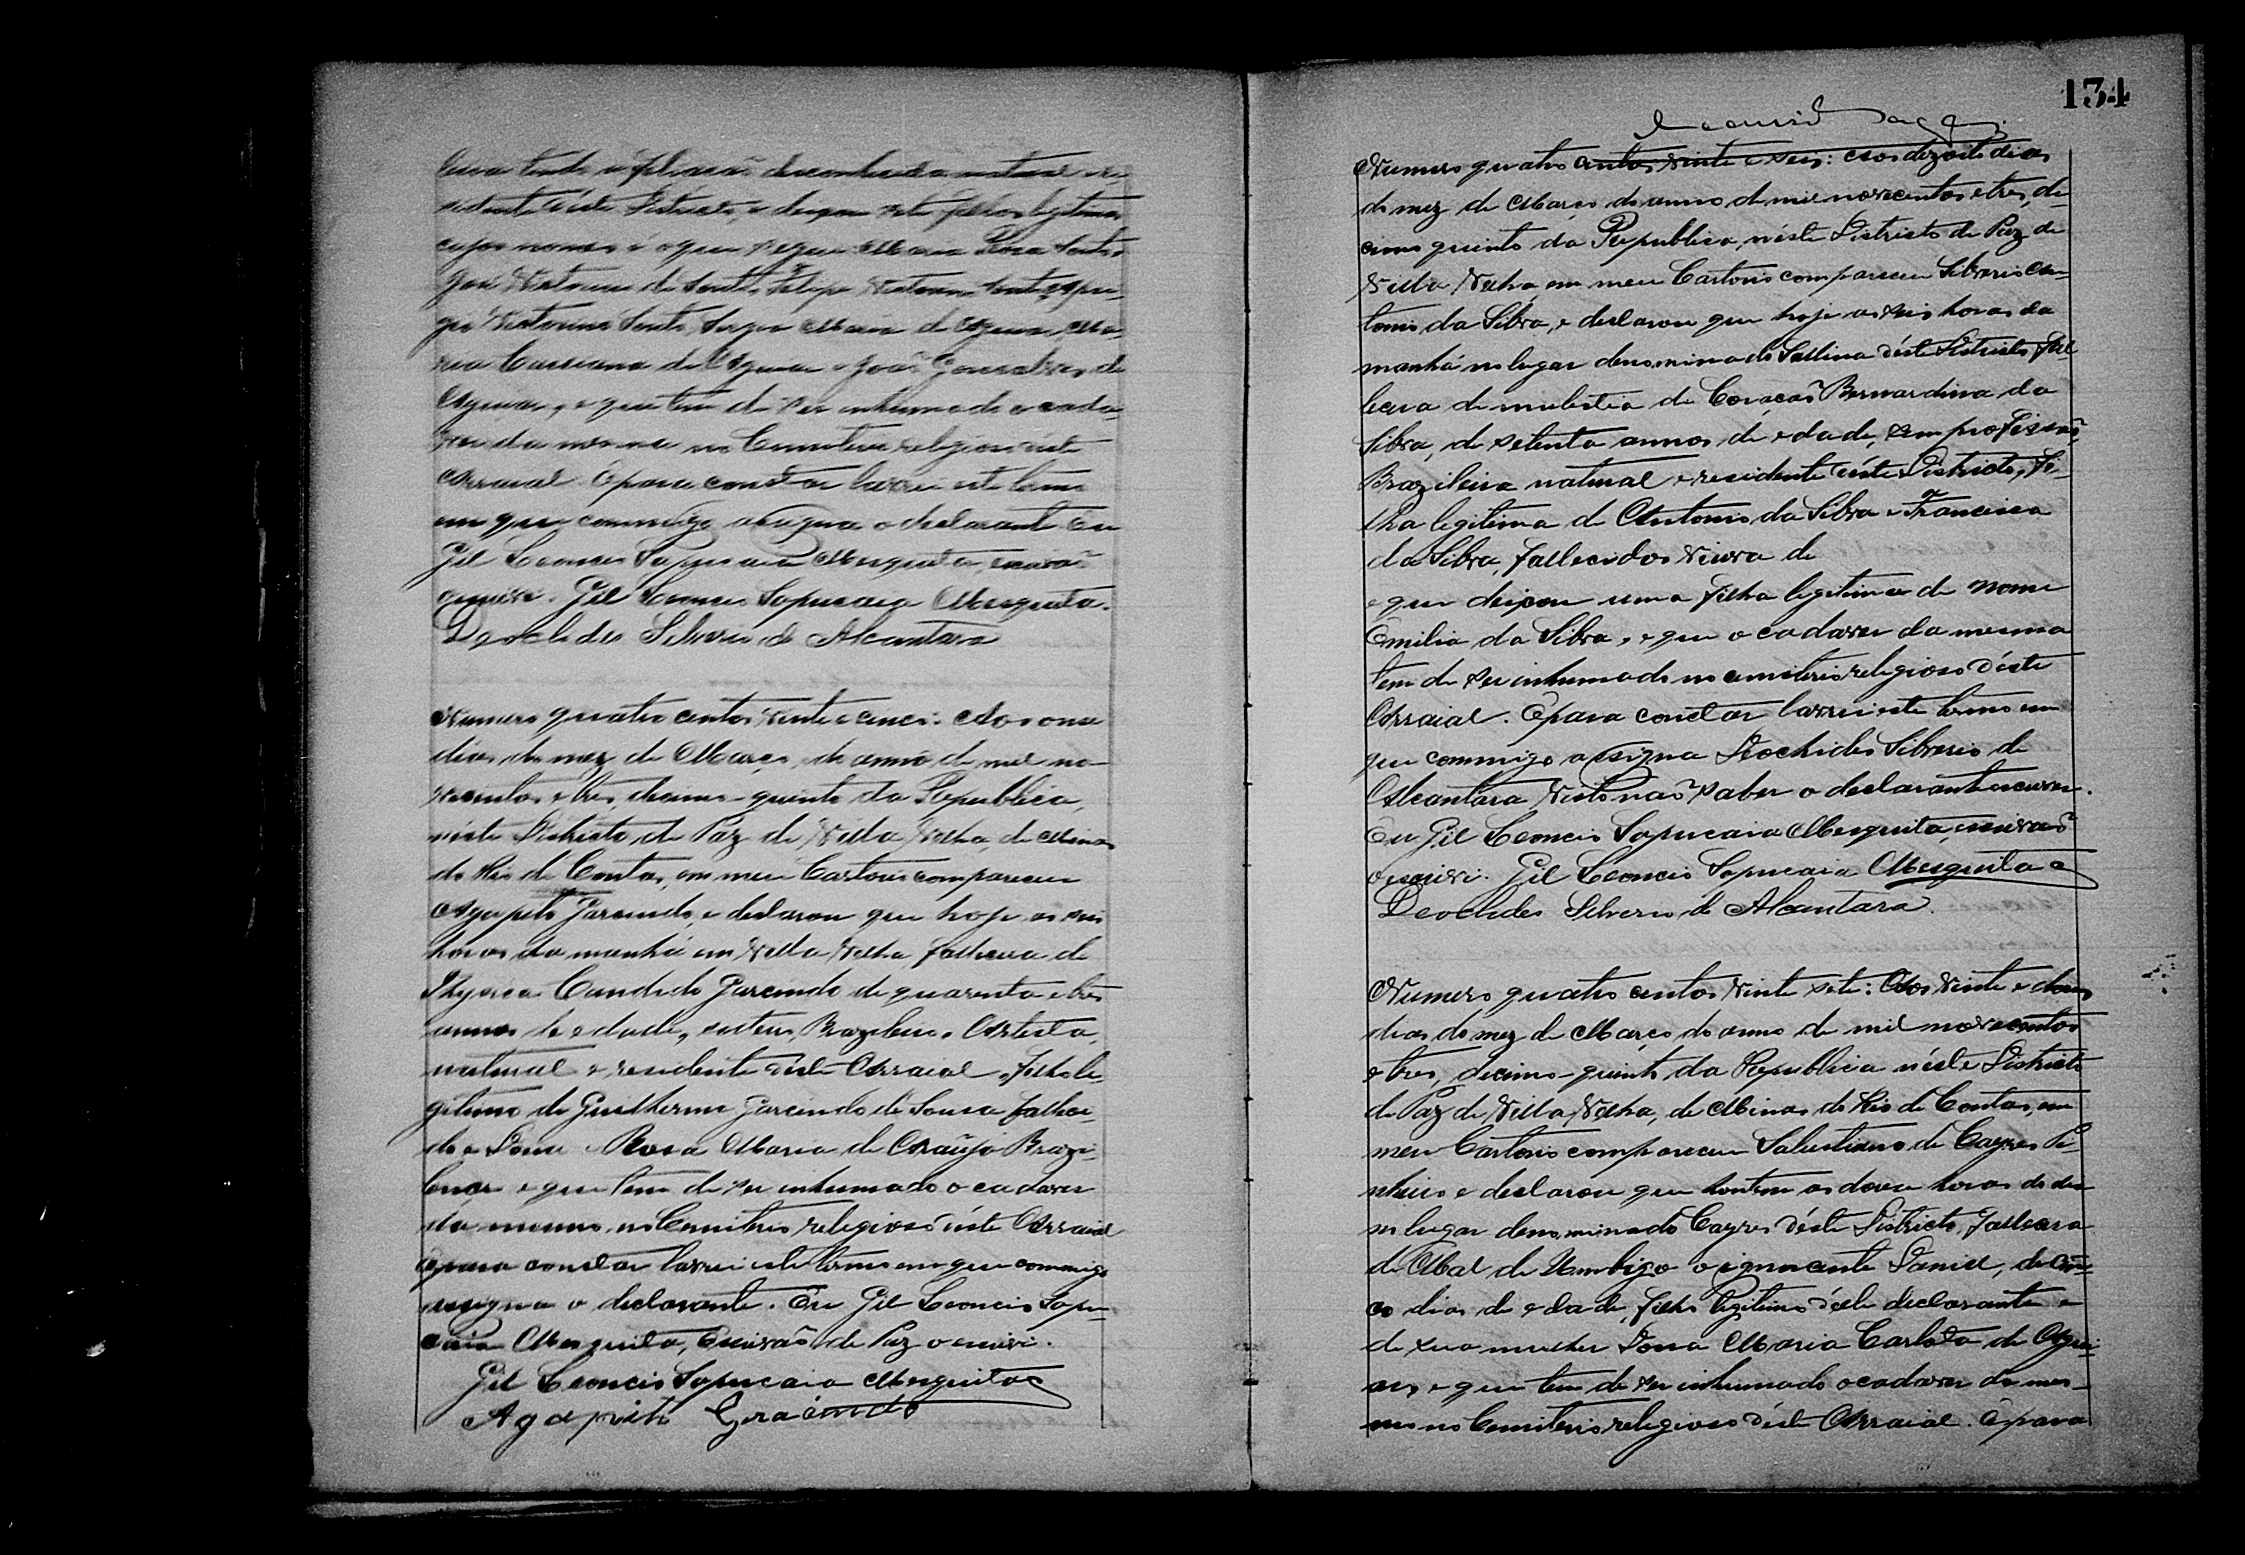 leira tendo a filiação desconhecida natural e re-
sidente n'este Districto, e deixou sete filhos legitimos
cujos nomes é o que segue Maria Rosa
José Victorino de Felipe Victorino
Victorino Maria de Aguiar, Ma-
ria Cassiana de Aguiar e João Gonsalves de
Aguiar, e que tem de ser inhumado o cada-
ver da mesma no Cemiterio religioso n'este
Arraial. E para constar lavrei este termo
em que commigo assigna o declarante. Eu
Gil Leoncio Sapucaia Mesquita, escrivão
o escrivi. Gil Leoncio Sapucaia Mesquita.
Deoclides Silverio de Alcantara
Numero quatro centos vinte e cinco: Aos onse
dias do mez de Março, do anno de mil no-
vecentos e tres, decimo-quinto da Republica,
n'este Districto de Paz de Villa Velha, de Minas
do Rio de Contas, em meu Cartorio compareceu
Agapito Garcindo, e declarou que hoje as seis
horas da manhã em Villa Velha falleceu de
Candido Garcindo de quarenta e tres
annos de edade, solteiro, Brazileiro, Artista,
natural e residente n'este Arraial, filho le-
gitimo de Guilherme Garcindo de Sousa falleci-
do e Dona Rosa Maria de Araujo Brazi-
leira e que tem de ser inhumado o cadaver
do mesmo no Cemiterio religioso d'este Arraial
E para constar lavrei este termo em que commigo
assigna o declarante. Eu Gil Leoncio Sapu-
caia Mesquita, Escrivão de Paz o escrivi.
Gil Leoncio Sapucaia Mesquita
Agapito Gracindo
134
Numero quatro centos vinte e seis: Aos dezoito dias
do mez de Março do anno de mil novecentos e tres, de-
cimo quinto da Republica, n'este Districto de Paz de
Villa Velha em meu Cartorio compareceu Silverio An-
tonio da Silva, e declarou que hoje as seis horas da
manhã no lugar denominado Sallina d'este Districto, fal-
lecera de mulestia de Coração Bernardina da
Silva, de setenta annos de edade, sem profissão,
Brazileira natural e residente n'este Districto, fi-
lha legitima de Antonio da Silva e Francisca
da Silva, fallecidos viuva de
e que deixou uma filha legitima de nome
Emilia da Silva, e que o cadaver da mesma
tem de ser inhumado no cemiterio religioso d'este
Arraial. E para constar lavrei este termo em
que commigo assigna Deochides Silverio de
Alcantara, visto não saber o declarante escrever.
Eu Gil Leoncio Sapucaia Mesquita, escrivão
o escrivi. Gil Leoncio Sapucaia Mesquita
Deoclides Silverio de Alcantara.
Numero quatro centos vinte sete: Aos vinte e dous
dias do mez de Março do anno de mil novecentos
e tres, decimo-quinto da Republica n'este Districto
de Paz de Villa Velha, de Minas do Rio de Contas, em
meu Cartorio compareceu Salustiano de Cayres Pi-
nheiro e declarou que hontem as dose horas do dia
no lugar denominado Cayres d'este Districto, fallecera
de Mal de Umbigo o ignocente Daniel, de cin-
co dias de edade, filho legitimo d'elle declarante e
de sua mulher Dona Maria Carlota de Agui-
ar, e que tem de ser inhumado o cadaver do mes-
mo no Cemiterio religioso d'este Arraial. E para